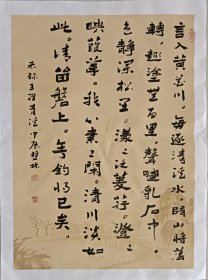 言入黄花川。每逐清溪水。随山将萬
轉。趣途世百里。聲喧乱石中。
色静深松里。漾漾泛菱荇。澄澄
映葭葦。我心素已閑。清川淡如
此。请留磐上。垂钓将已矣。
王维青溪 甲辰